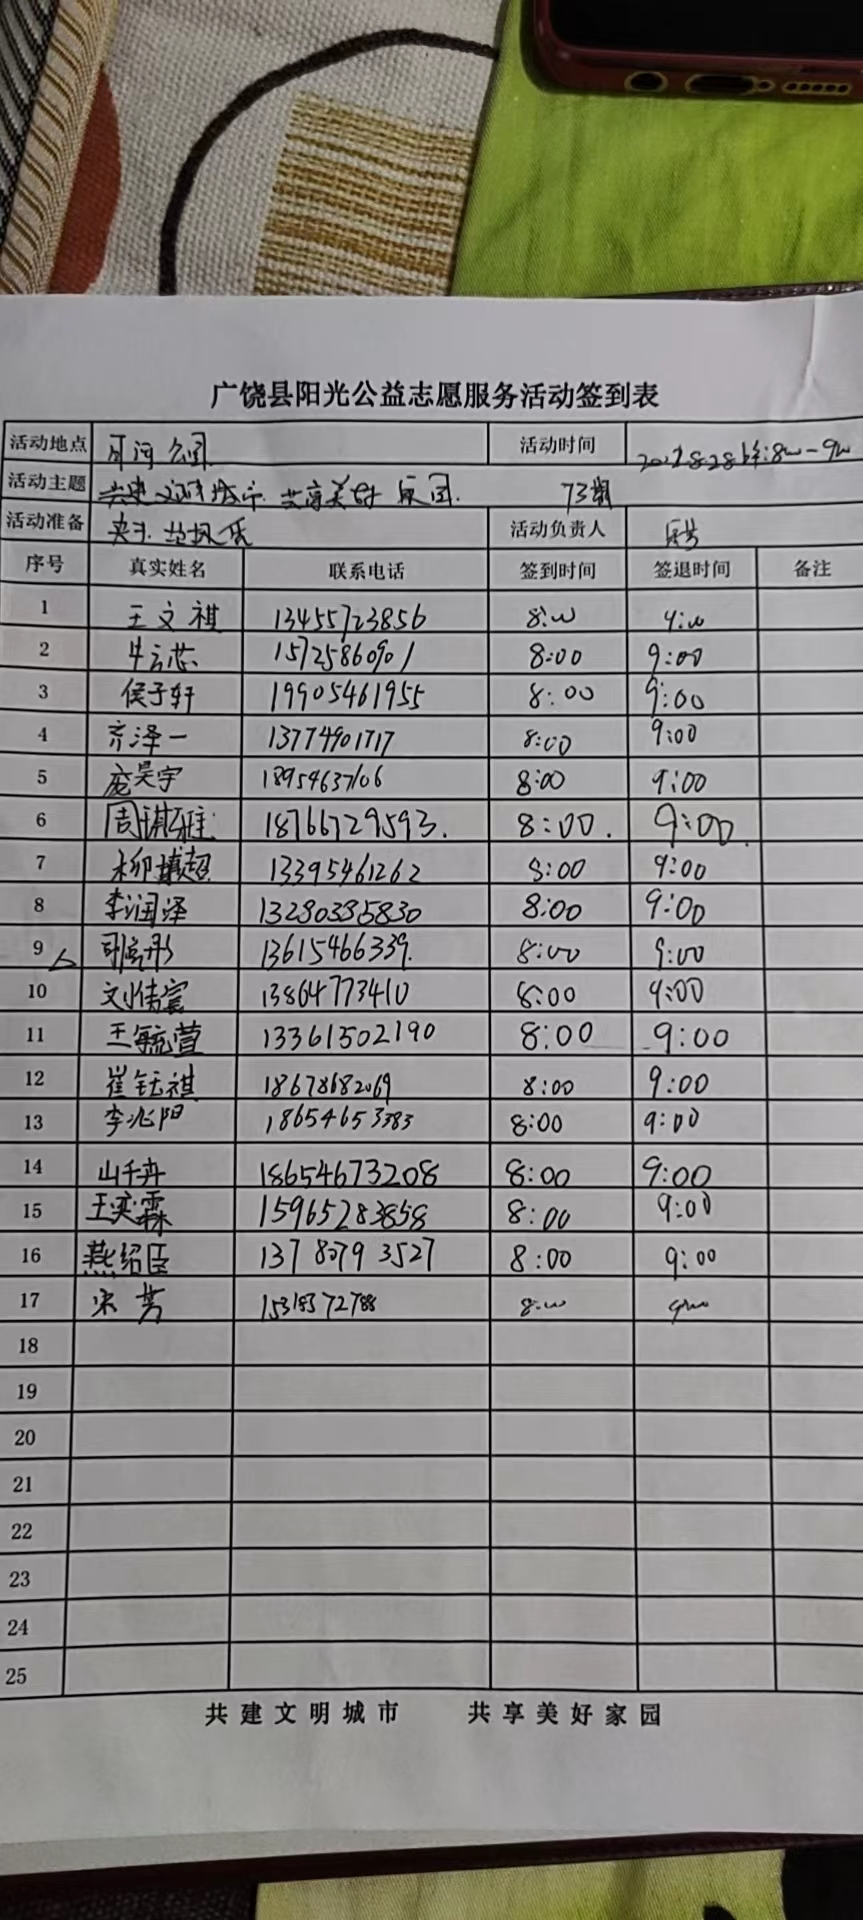 广饶县阳光公益志愿服务活动签到表
活动地点 月河公园 活动时间
活动主题 共建文明城市 共享美好家园 73期
活动准备 夹子 垃圾袋 活动负责人
序号 真实姓名 联系电话 签到时间 签退时间 备注
1 王文祺 13455723856 8:00 9:00
2 牛云芯 15725860901 8:00 9:00
3 侯子轩 19905461955 8:00 9:00
4 齐泽一 13774901717 8:00 9:00
5 庞昊宇 18954637106 8:00 9:00
6 周 18766729593. 8:00. 9:00.
7 柳 超 13395461262 8:00 9:00
8 李润泽 13280385830 8:00 9:00
9 13615466339. 8:00 9:00
10 刘倩宸 13864773410 8:00 9:00
11 王毓萱 13361502190 8:00 9:00
12 崔钰祺 18678682069 8:00 9:00
13 李兆阳 18654653383 8:00 9:00
14 山千卉 18654673208 8:00 9:00
15 王奕霖 15965283858 8:00 9:00
16 燕绍臣 13780793527 8:00 9:00
17 宋芳 8:00 9:00
18
19
20
21
22
23
24
25
共建文明城市 共享美好家园